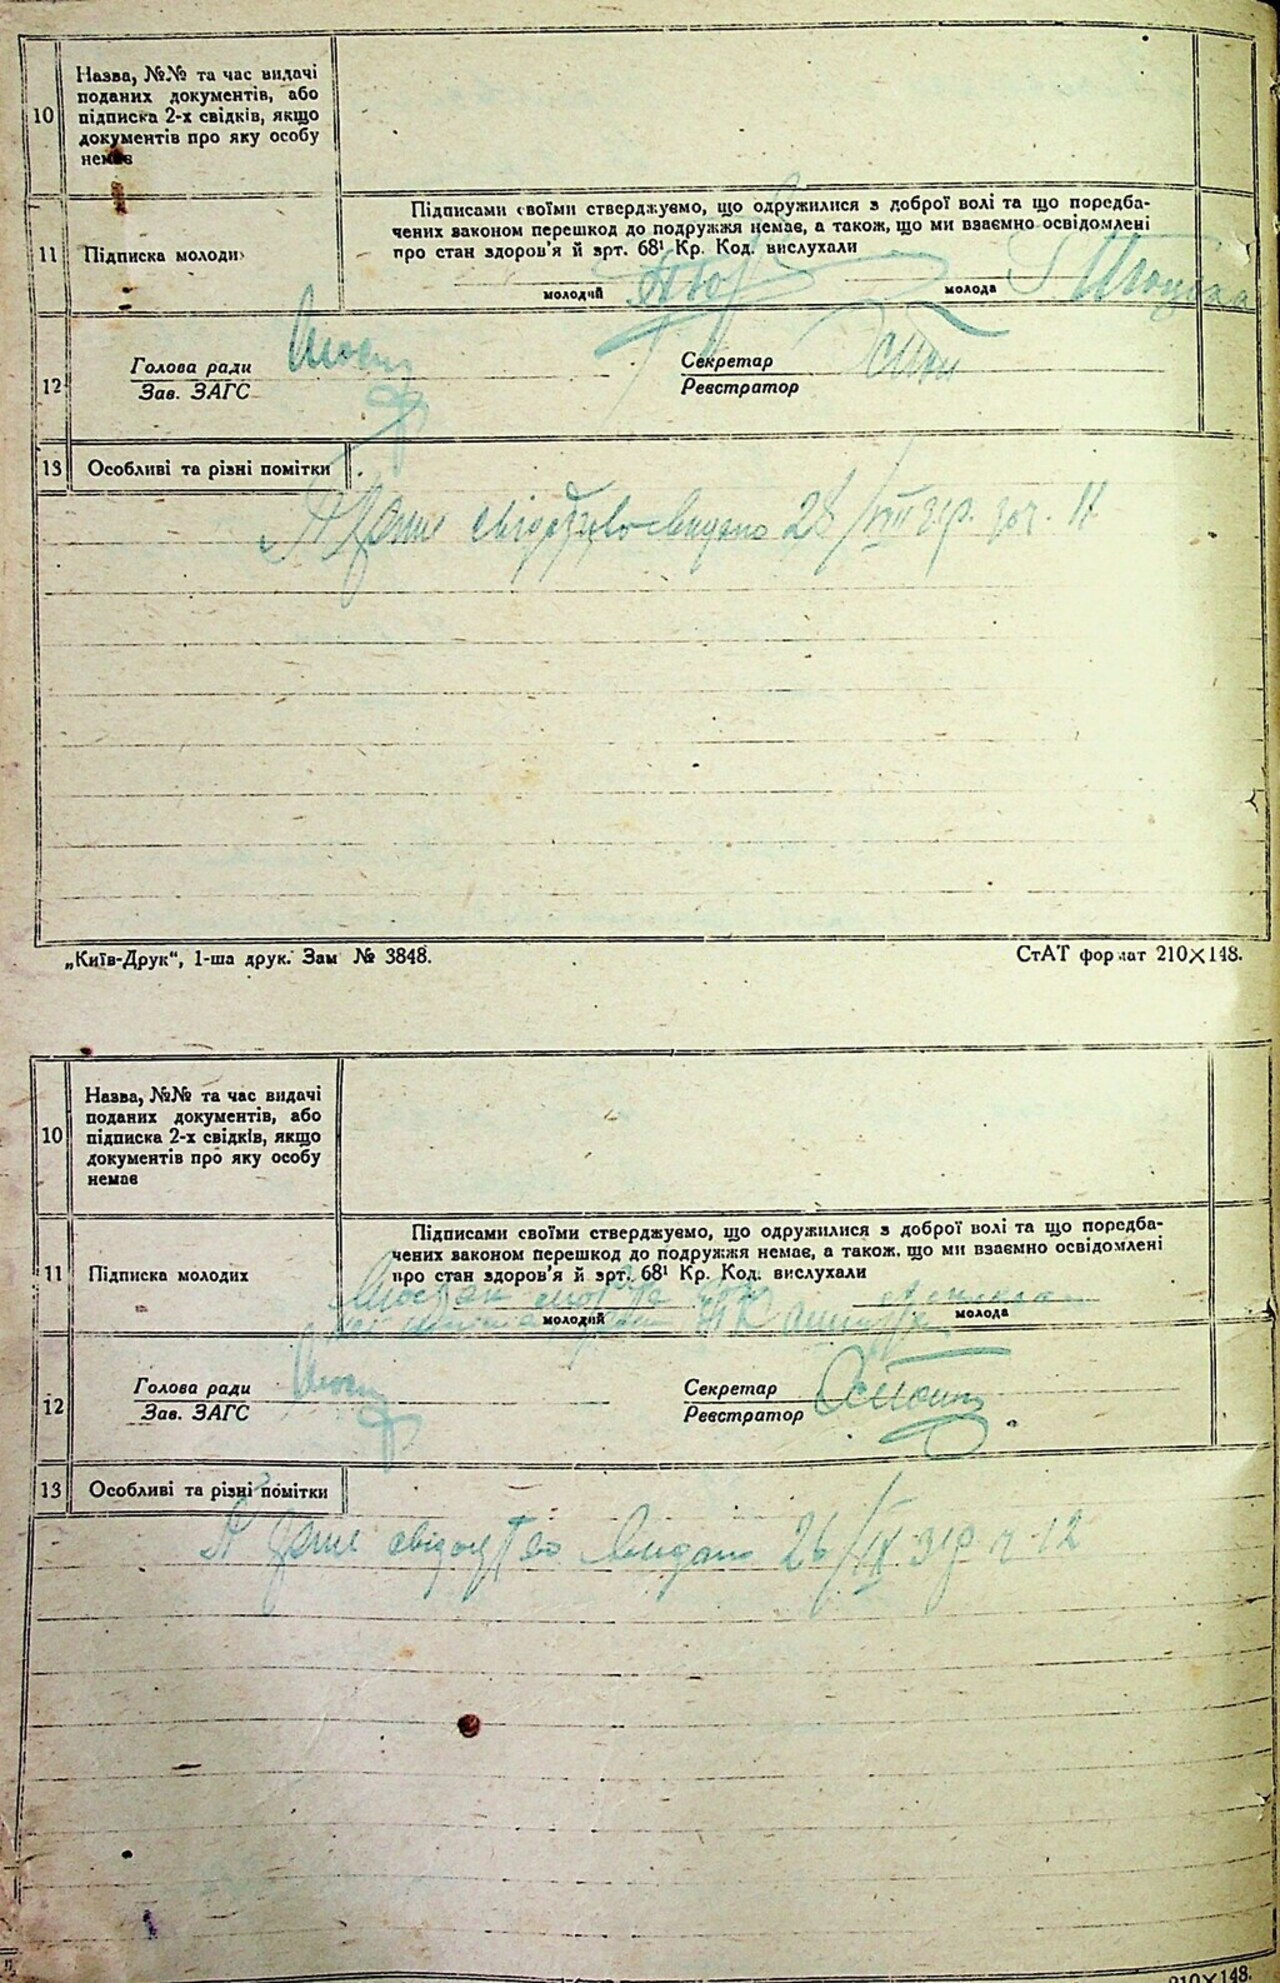 10
Назва, №№ та час видачі
поданих документів, або
підписка 2-х свідків, якщо
документів про яку особу
немає
11
Підписка молоди
Підписами своїми стверджуємо, що одружилися з доброї волі та що передба-
чених законом перешкод до подружжя немає, а також, що ми взаємно освідомлені
про стан здоров'я й зрт. 68¹ Кр. Код. вислухали
молодий
молода
12
Голова ради
Зав. ЗАГС
Секретар
Реєстратор
13
Особливі та різні помітки
видано 28/VIII
11
„Київ-Друк“, 1-ша друк. Зам № 3848.
СтАТ формат 210×148.
10
Назва, №№ та час видачі
поданих документів, або
підписка 2-х свідків, якщо
документів про яку особу
немає
11
Підписка молодих
Підписами своїми стверджуємо, що одружилися з доброї волі та що передба-
чених законом перешкод до подружжя немає, а також, що ми взаємно освідомлені
про стан здоров'я й зрт. 68¹ Кр. Код. вислухали
молодий
молода
12
Голова ради
Зав. ЗАГС
Секретар
Реєстратор
13
Особливі та різні помітки
видано 26/IX 31р 12
210×148.